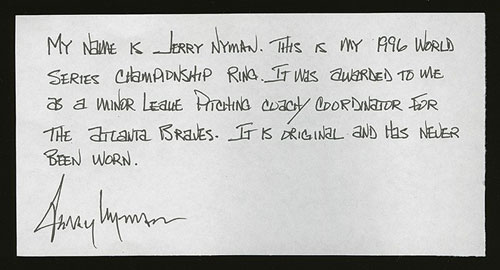 My name is Jerry Nyman. This is my 1996 World
Series Championship Ring. It was awarded to me
as a minor Leaue Pitching coach/Coordinator for
the Atlanta Braves. It is original and has never
been worn.
Jerry Nyman